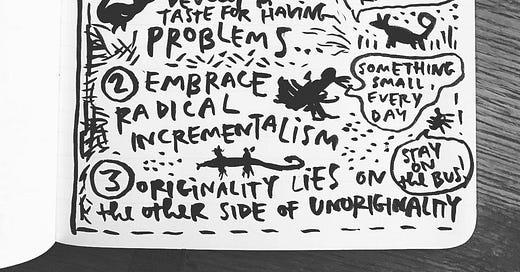 TASTE FOR HAVING
PROBLEMS..
② EMBRACE
RADICAL
INCREMENTALISM
SOMETHING
SMALL,
EVERY
DAY
③ ORIGINALITY LIES ON
the other SIDE OF UNORIGINALITY
STAY
ON
the BUS!